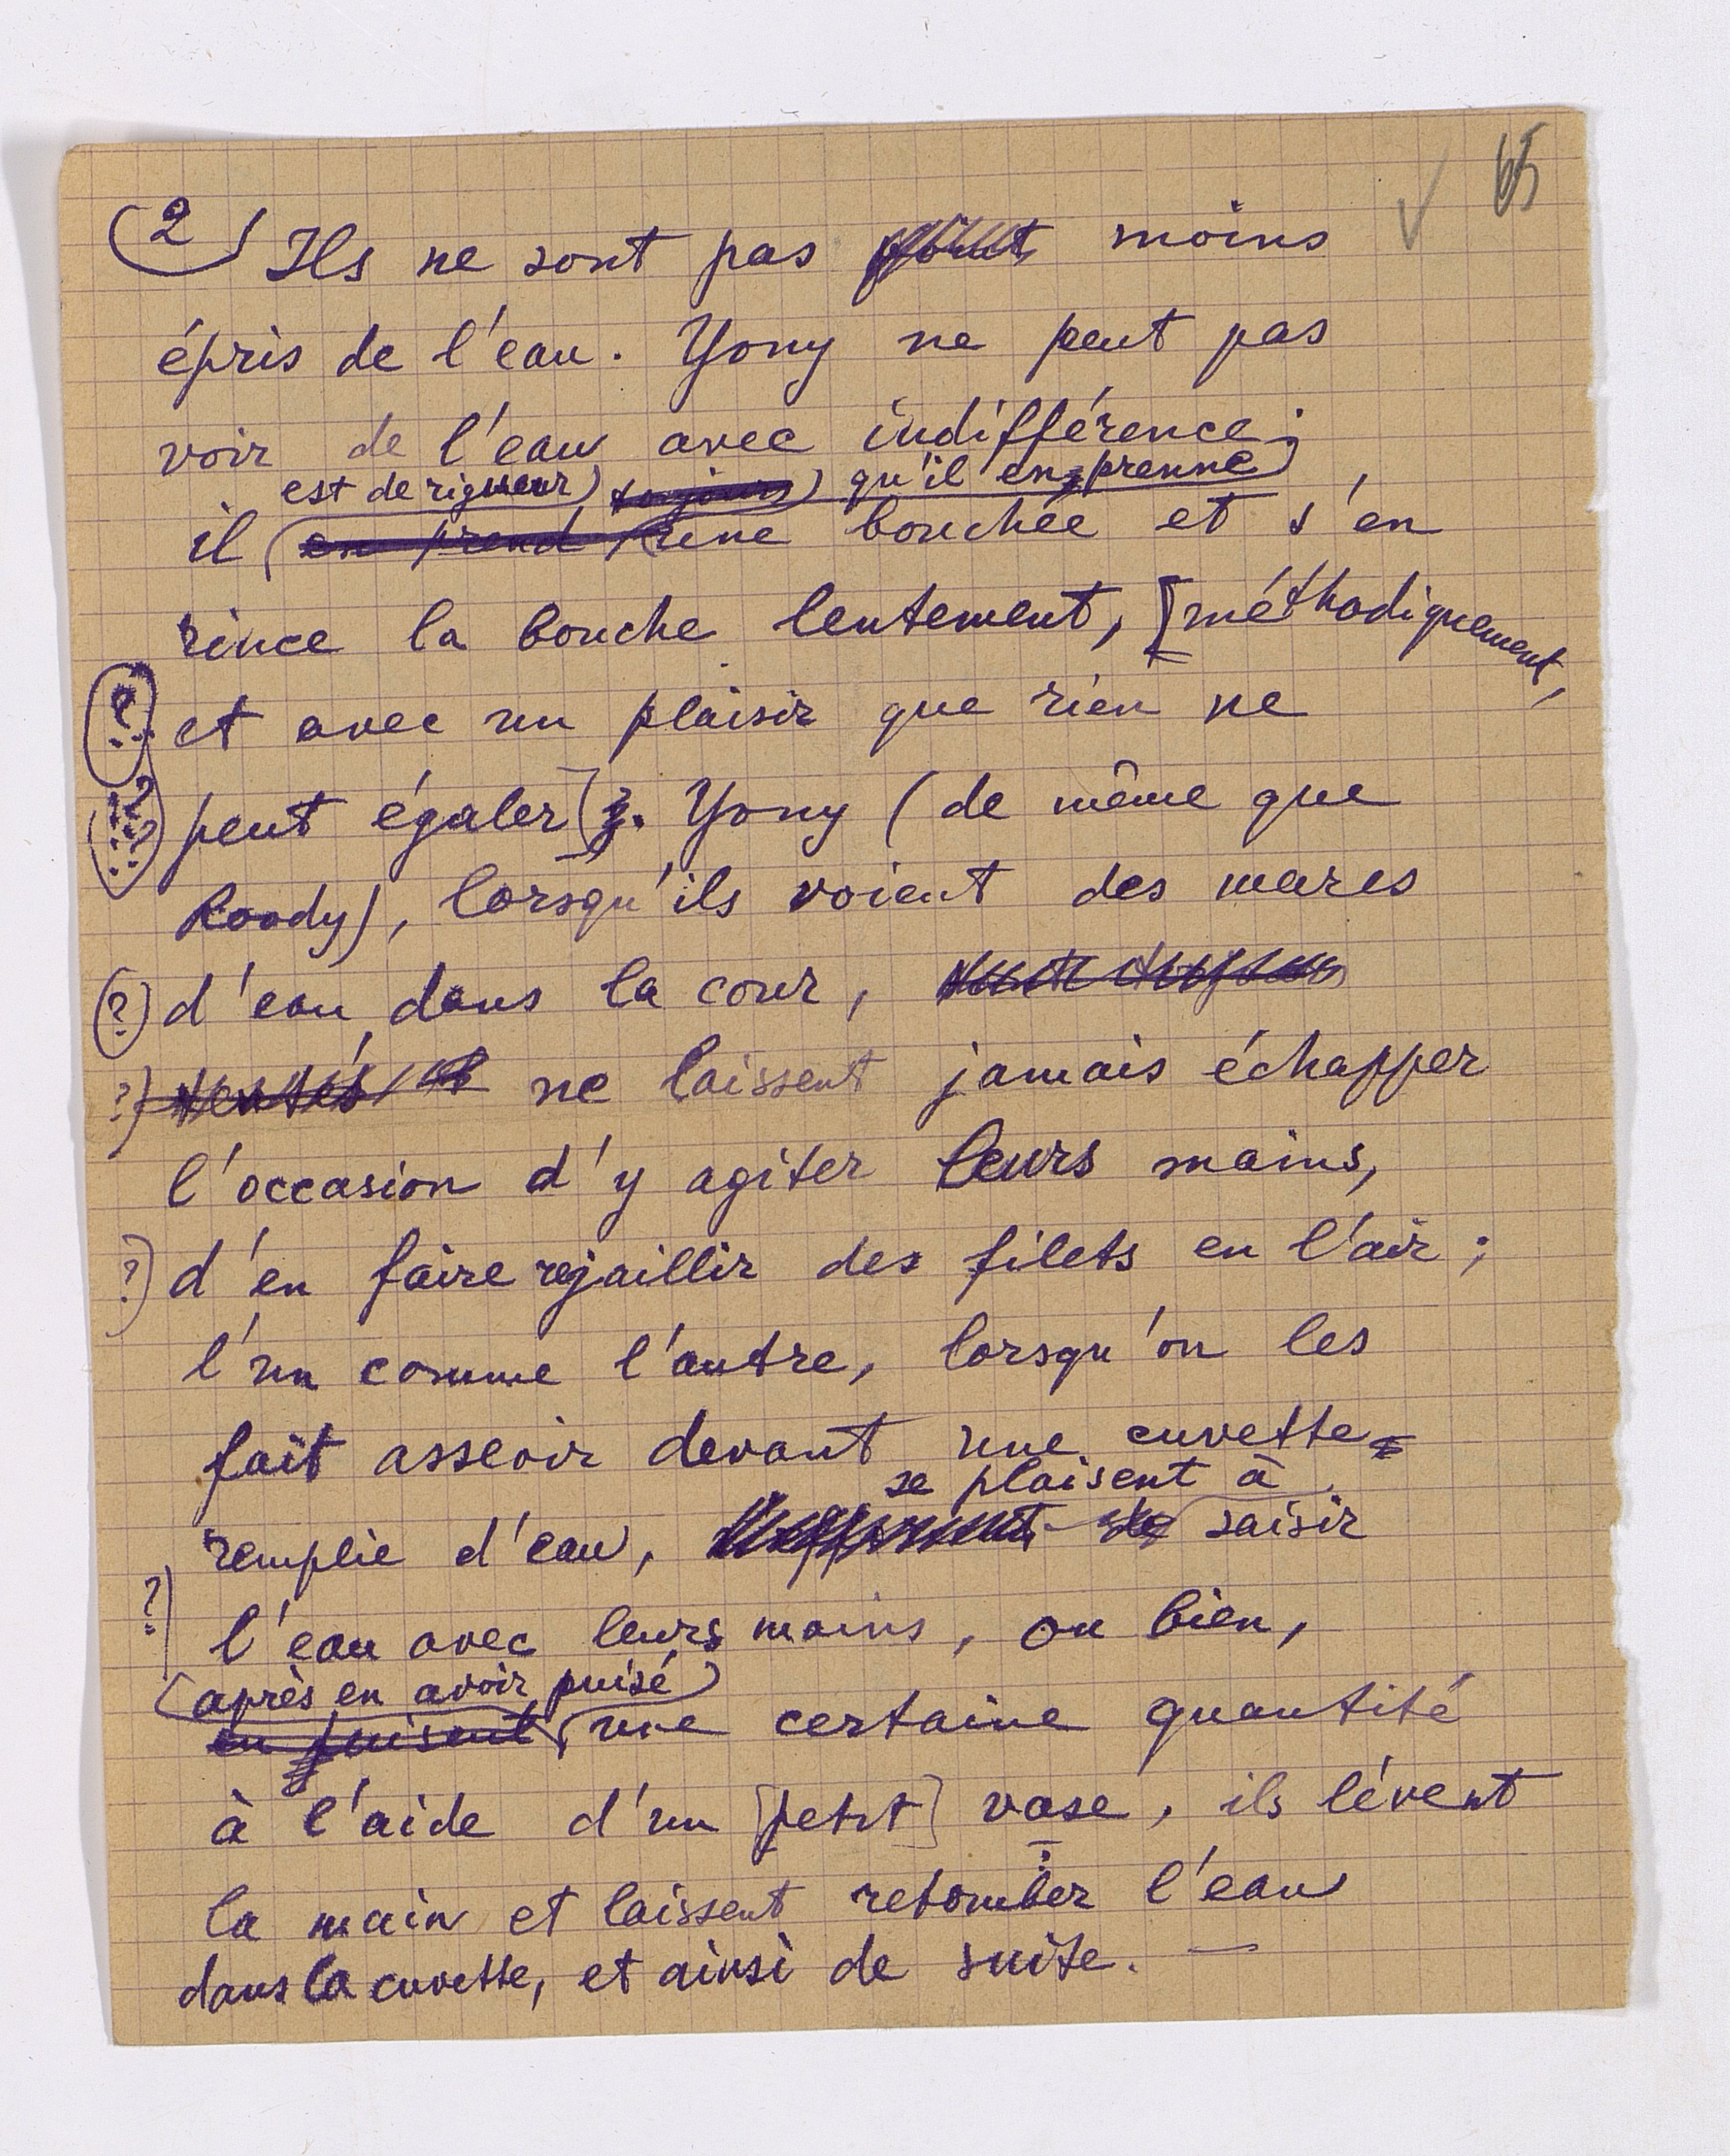 65
(2) Ils ne sont pas point moins
épris de l'eau. Yony ne peut pas
voir de l'eau avec indifférence;
est de rigueur) toujours) qu'il en prenne
il (en prend) une bouchée et s'en
rince la bouche lentement, [méthodiquement,
(?) et avec un plaisir que rien ne
peut égaler]. Yony (de même que
Roody), lorsqu'ils voient des mares
(?) d'eau dans la cour,
?) tentés ne laissent jamais échapper
l'occasion d'y agiter leurs mains,
?) d'en faire rejaillir des filets en l'air;
l'un comme l'autre, lorsqu'on les
fait asseoir devant une cuvette
se plaisent à
remplie d'eau, de saisir
?) l'eau avec leurs mains, ou bien,
(après en avoir puisé)
en puisent, une certaine quantité
à l'aide d'un [petit] vase, ils lèvent
la main et laissent retomber l'eau
dans la cuvette, et ainsi de suite. —